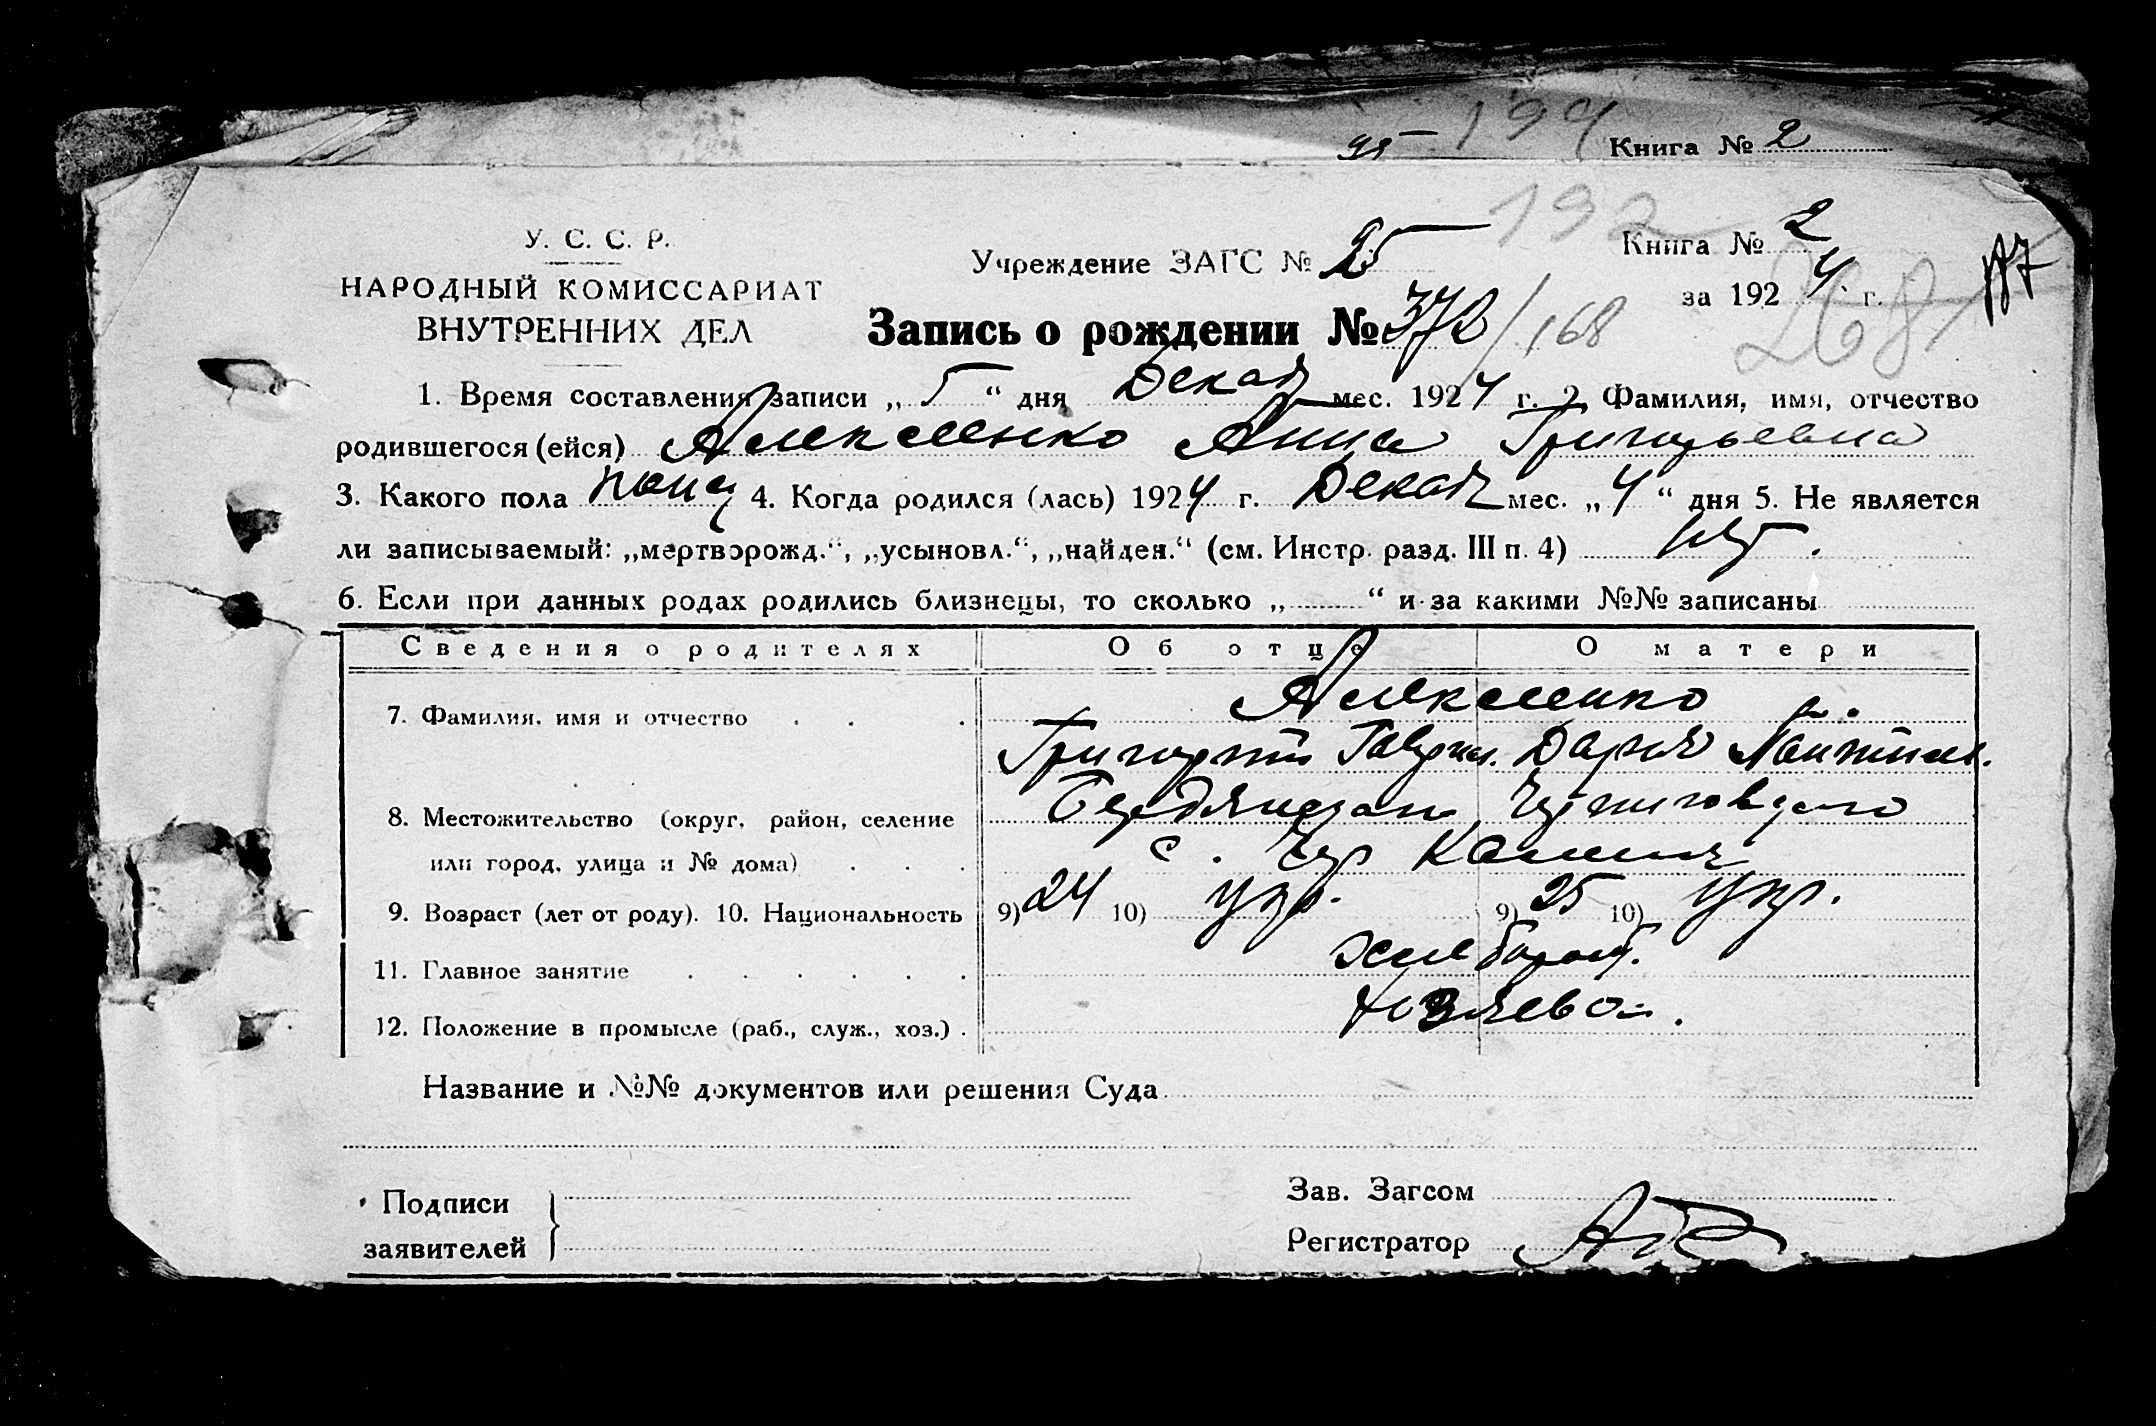 95 199 Книга № 2
У. С. С. Р.
НАРОДНЫЙ КОМИССАРИАТ
ВНУТРЕННИХ ДЕЛ
Учреждение ЗАГС № 25 192 Книга № 2
за 1924 г. 268 187
Запись о рождении № 372/168
1. Время составления записи „5“ дня Декаб мес. 1924 г. 2. Фамилия, имя, отчество
родившегося (ейся) Алексеенко Анна Григорьевна
3. Какого пола 4. Когда родился (лась) 1924 г. Декаб мес. „4“ дня 5. Не является
ли записываемый: „мертворожд.“, „усыновл.“, „найден.“ (см. Инстр. разд. III п. 4) нет.
6. Если при данных родах родились близнецы, то сколько „ “ и за какими №№ записаны
Сведения о родителях Об отце О матери
7. Фамилия, имя и отчество Алексеенко
Григорий Гаврил. Дарья
8. Местожительство (округ, район, селение Черниговского
или город, улица и № дома) с.
9. Возраст (лет от роду). 10. Национальность 9) 24 10) укр. 9) 25 10) укр.
11. Главное занятие хлебороб.
12. Положение в промысле (раб., служ., хоз.)
Название и №№ документов или решения Суда
Подписи
заявителей
Зав. Загсом
Регистратор